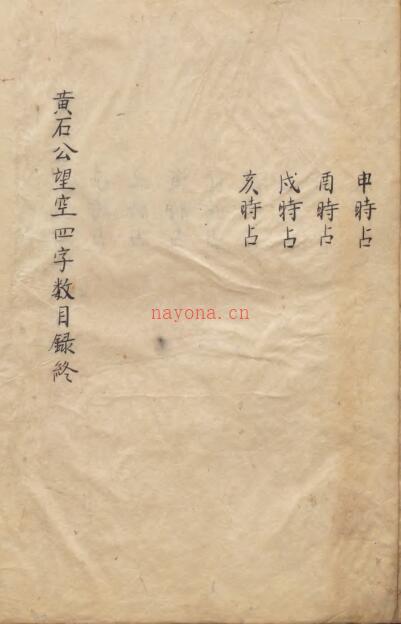 申時占
酉時占
戌時占
亥時占
黃石公望空四字数目録終
nayona.cn